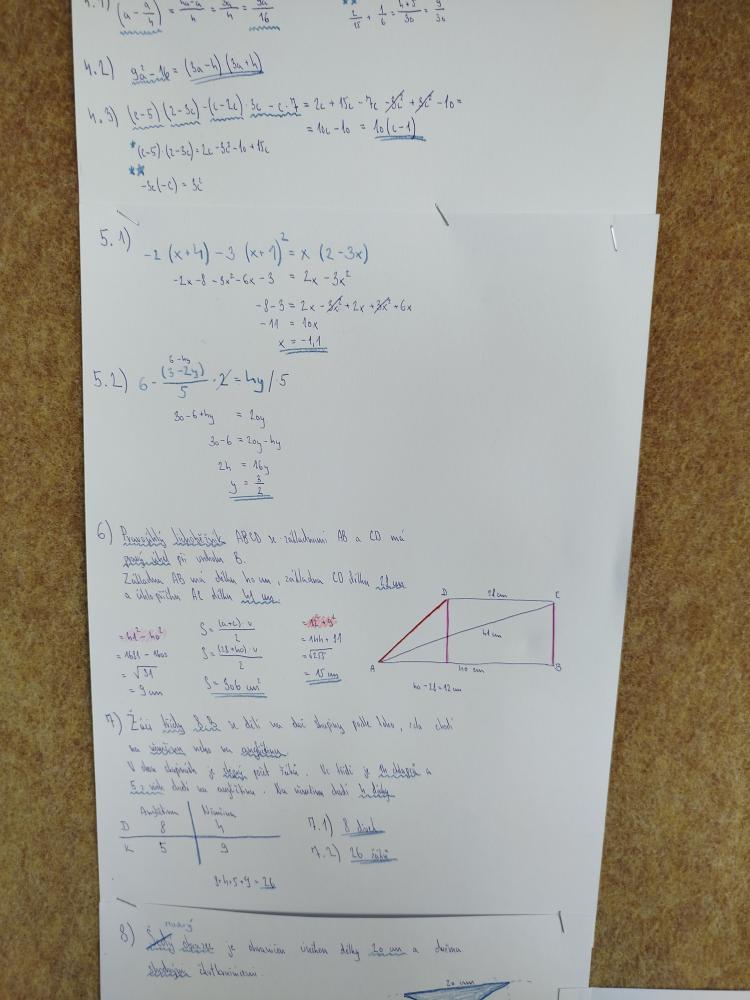 4.1) (a - a/4) = (4a-a)/4 = 3a/4 = 9a/16
** 2/15 + 1/6 = (4+5)/30 = 9/30
4.2) 9a² - 16 = (3a-4)(3a+4)
4.3) (c-5)(2-3c)-(c-2c)·3c-c·7 = 2c + 15c - 7c - 3c² + 3c² - 10 =
= 10c - 10 = 10(c-1)
* (c-5)·(2-3c) = 2c - 3c² - 10 + 15c
**
-3c(-c) = 3c²
5.1)
-2 (x+4) - 3 (x+1)² = x (2-3x)
-2x - 8 - 3x² - 6x - 3 = 2x - 3x²
-8-3 = 2x - 3x² + 2x + 3x² + 6x
-11 = 10x
x = -1,1
6-4y
5.2) 6 - (3-2y)/5 · 2 = 4y /·5
30-6+4y = 20y
30-6 = 20y-4y
24 = 16y
y = 3/2
6) Pravoúhlý lichoběžník ABCD se základnami AB a CD má
pravý úhel při vrcholu B.
Základna AB má délku 40 cm, základna CD délku 28 cm
a úhlopříčka AC délku 41 cm.
= 41² - 40²
= 1681 - 1600
= √81
= 9 cm
S = (a+c)·v/2
S = (28+40)·v/2
S = 306 cm²
= 12² + 9²
= 144 + 81
= √225
= 15 cm
D 28 cm C
41 cm
A 40 cm B
40 - 28 = 12 cm
7) Žáci třídy 8.B se dělí na dvě skupiny podle toho, zda chodí
na němčinu nebo na angličtinu.
V obou skupinách je stejný počet žáků. Ve třídě je 14 chlapců a
5 z nich chodí na angličtinu. Na němčinu chodí 4 dívky.
Angličtina Němčina
D 8 4
K 5 9
7.1) 8 dívek
7.2) 26 žáků
8+4+5+9 = 26
modrý
8) Šedý obrazec je ohraničen úsečkou délky 20 cm a dvěma
shodnými čtvrtkružnicemi.
20 cm